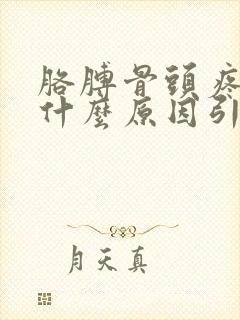 胳膊骨頭疼
什麼原因引
月天真